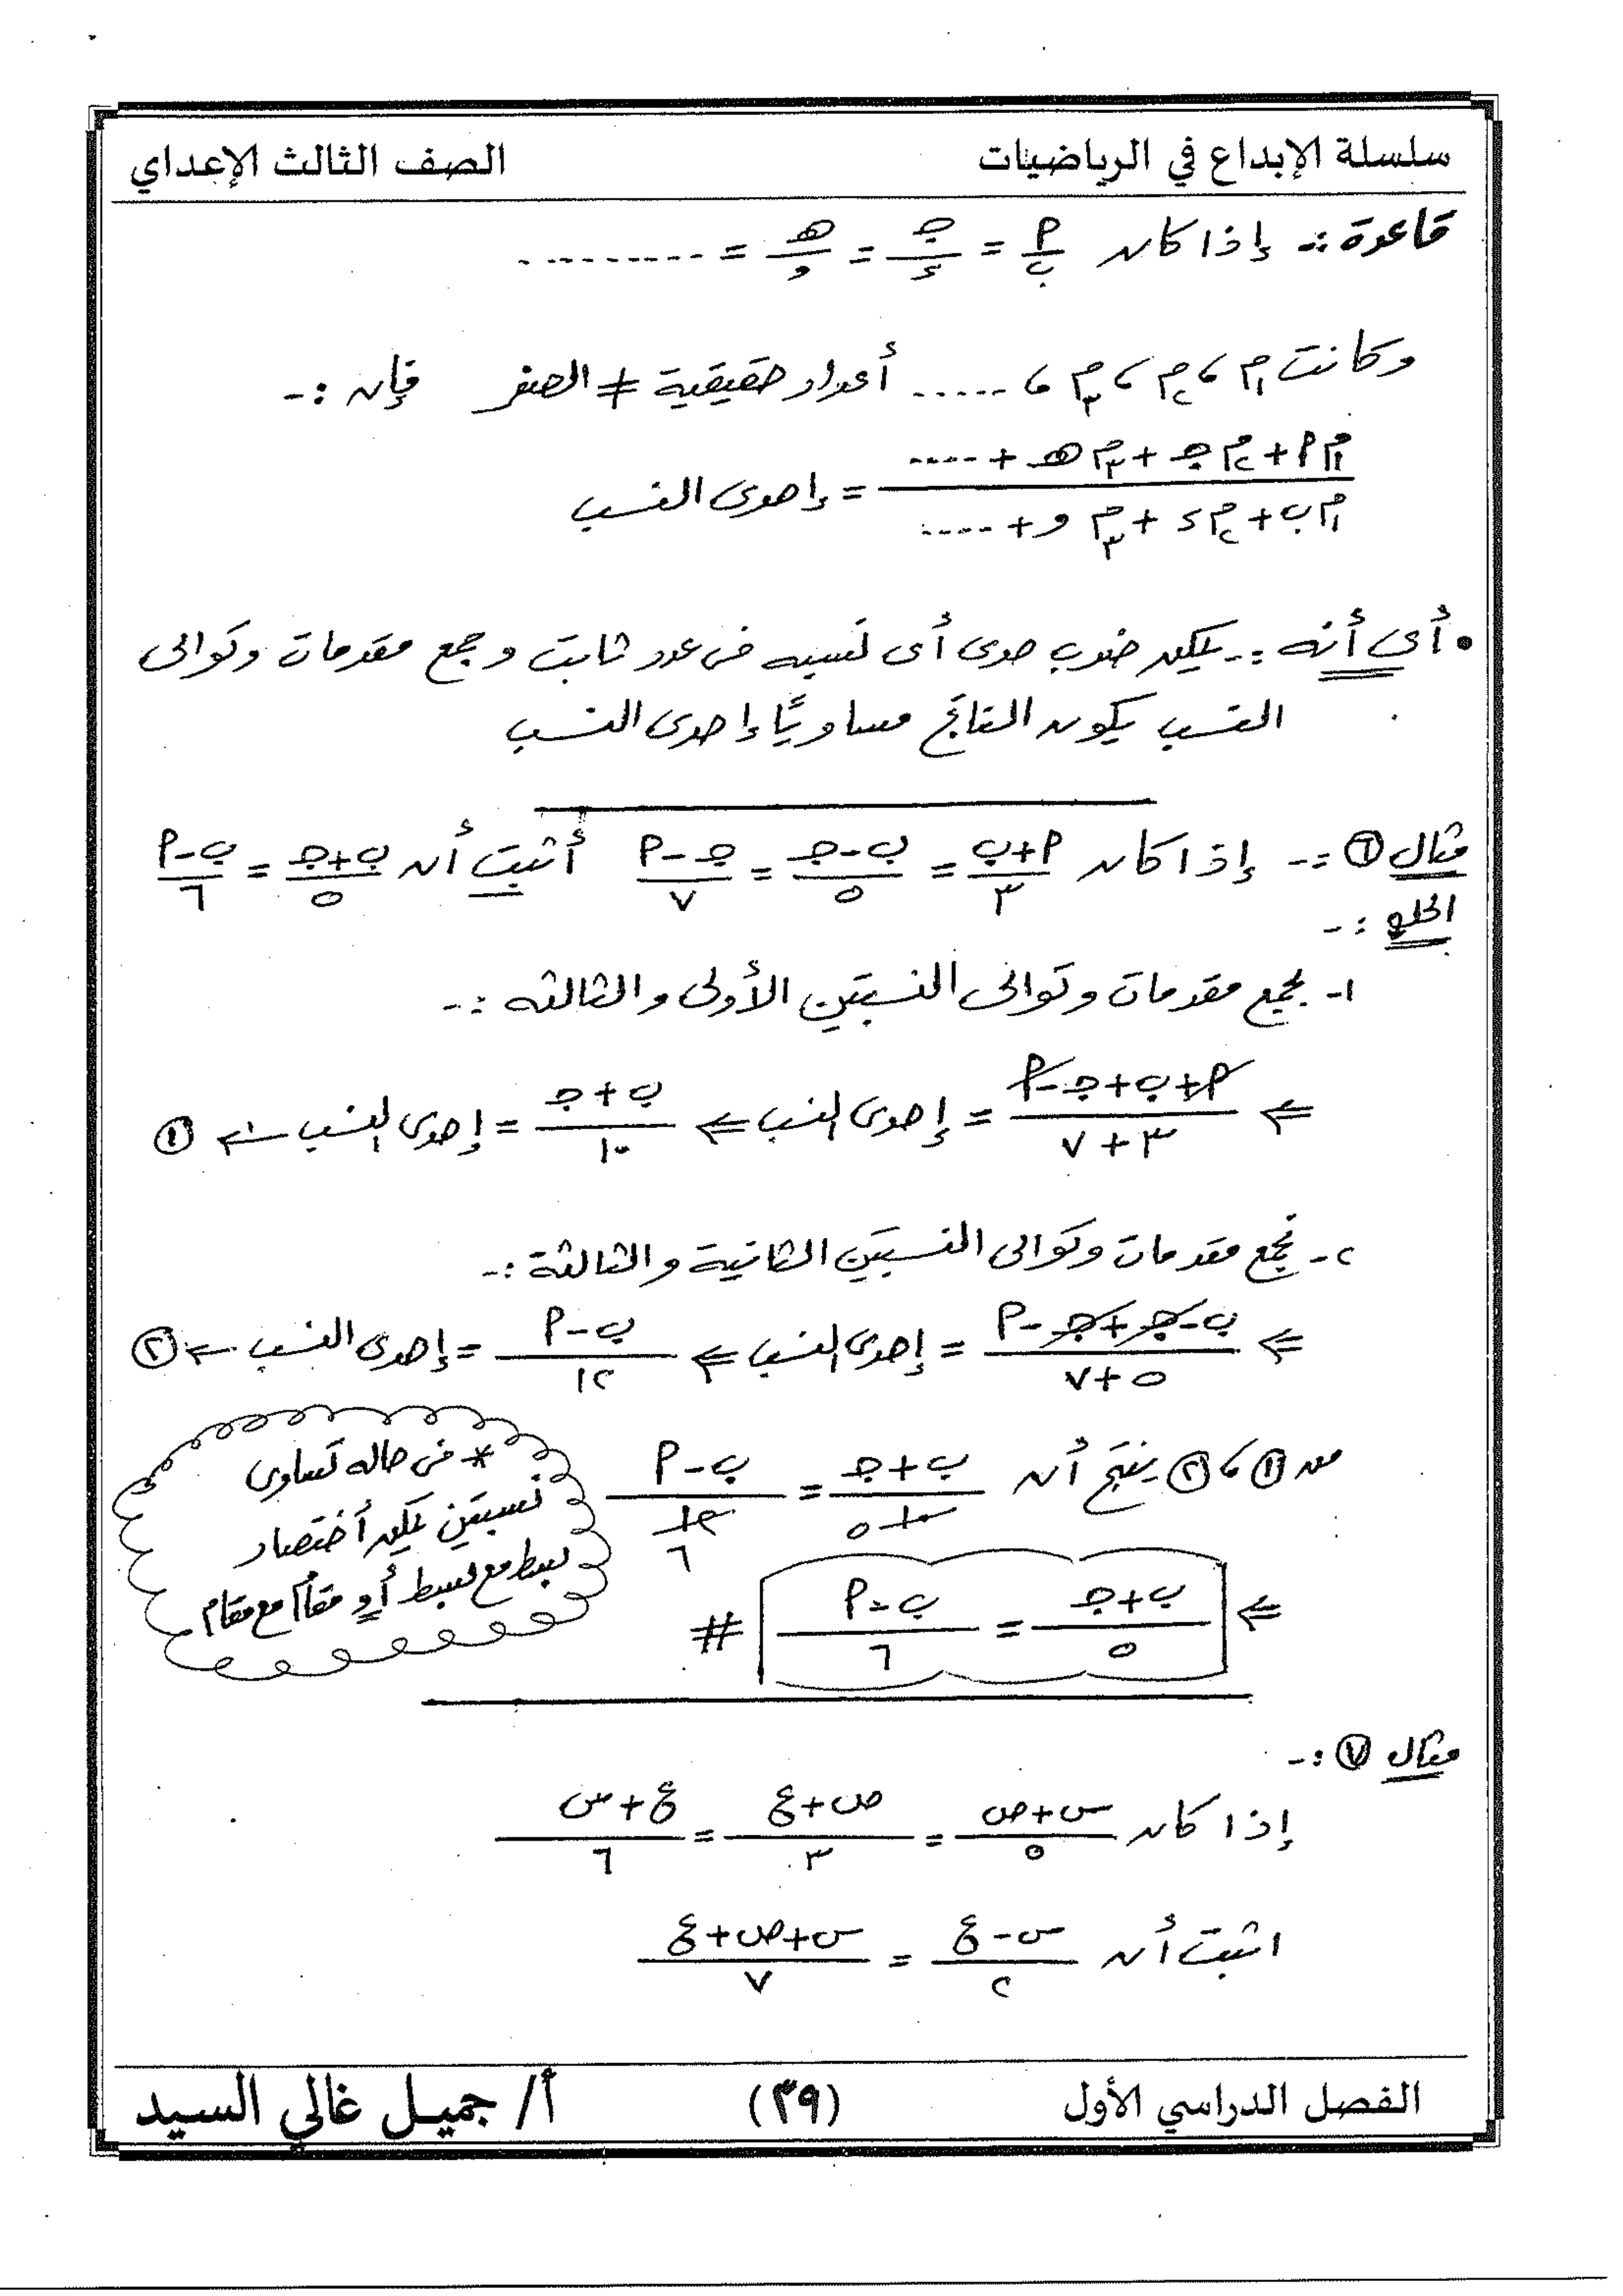 سلسلة الإبداع في الرياضيات
الصف الثالث الإعداي
قاعدة :- إذا كان أ/ب = ج/د = هـ/و = ..........
وكانت م١ ، م٢ ، م٣ ، ...... أعداد حقيقية ≠ الصفر فإن :-
(م١ أ + م٢ ج + م٣ هـ + ....)/(م١ ب + م٢ د + م٣ و + ....) = إحدى النسب
• أى أنه :- يمكن ضرب حدى أى نسبه فى عدد ثابت وجمع مقدمات وتوالى
النسب يكون الناتج مساويًا إحدى النسب
مثال ⑥ :- إذا كان (أ+ب)/٣ = (ب-ج)/٥ = (ج-أ)/٧ أثبت أن (ب+ج)/٥ = (ب-أ)/٦
الحل :-
١- بجمع مقدمات وتوالى النسبتين الأولى والثالثه :-
⇐ (أ+ب+ج-أ)/(٣+٧) = إحدى النسب ⇐ (ب+ج)/١٠ = إحدى النسب ← ①
٢- نجمع مقدمات وتوالى النسبتين الثانية والثالثة :-
⇐ (ب-ج+ج-أ)/(٥+٧) = إحدى النسب ⇐ (ب-أ)/١٢ = إحدى النسب ← ②
من ① ، ② ينتج أن (ب+ج)/١٠ ٥ = (ب-أ)/١٢ ٦
⇐ (ب+ج)/٥ = (ب-أ)/٦ #
* فى حاله تساوى
نسبتين يمكن أختصار
بسط مع بسط أو مقام مع مقام
مثال ⑦ :-
إذا كان (س+ص)/٥ = (ص+ع)/٣ = (ع+س)/٦
اثبت أن (س-ع)/٢ = (س+ص+ع)/٧
الفصل الدراسي الأول
(٣٩)
أ/ جميل غالي السيد